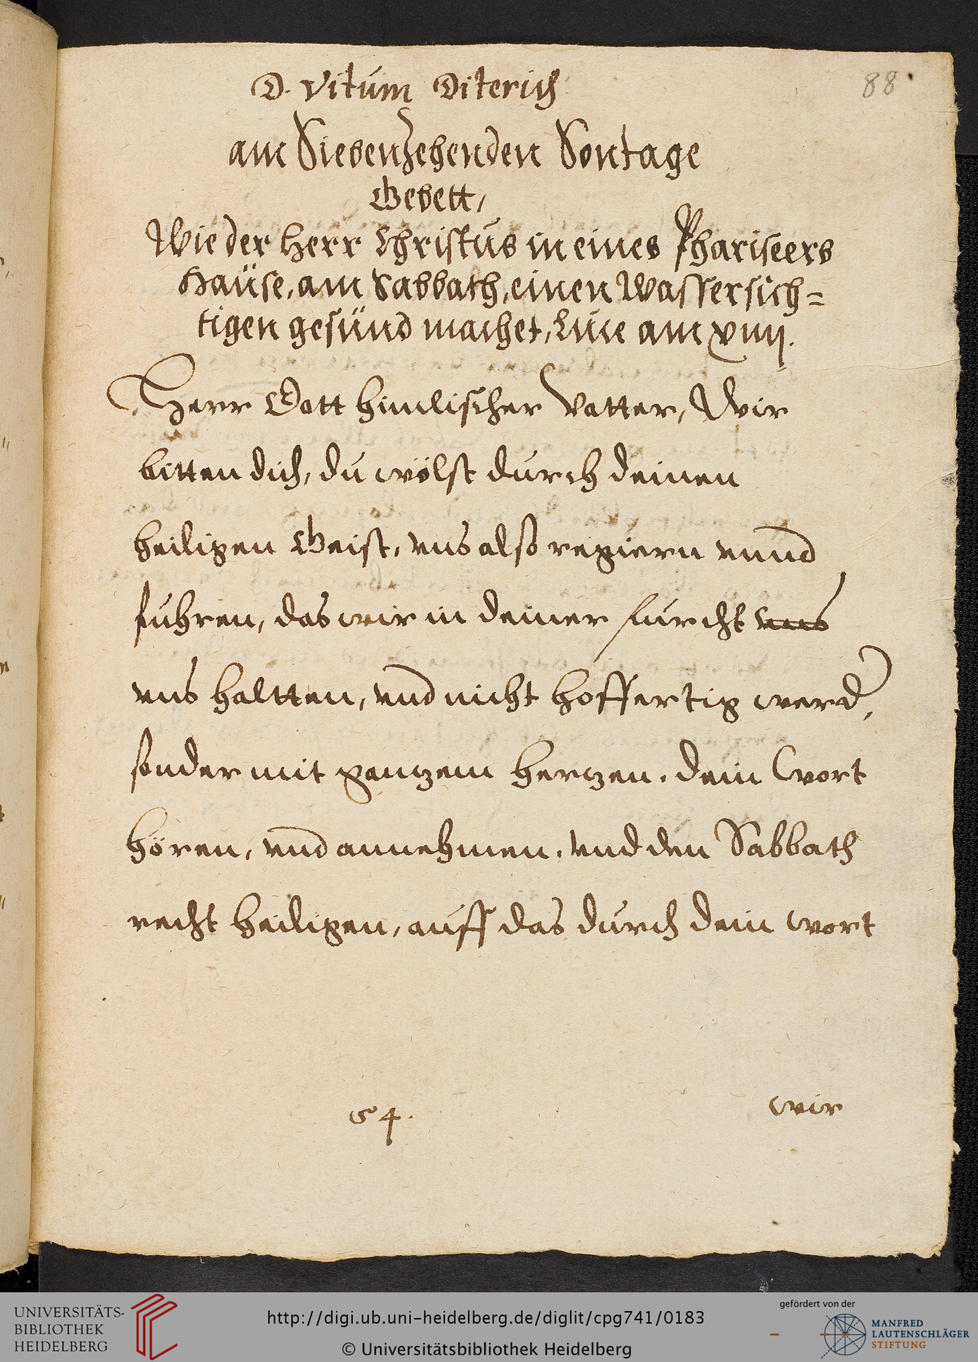 D. Vitum Diterich
88
am Siebenzehenden Sontage
Gebett,
Wie der Herr Christus in eines Phariseers
Hause, am Sabbath, einen Wassersüch=
tigen gesund machet, Luce am xiiij.
Herr Gott himlischer Vatter, Wir
bitten dich, du wölst durch deinen
heiligen Geist, vns also regiern vnnd
fuhren, das wir in deiner furcht vns
vns haltten, vnd nicht hoffertig werd,
sonder mit gantzem hertzen, dein wort
hören, vnd annehmen, vnd den Sabbath
recht heiligen, auff das durch dein wort
54.
wir
UNIVERSITÄTS-
BIBLIOTHEK
HEIDELBERG
http://digi.ub.uni-heidelberg.de/diglit/cpg741/0183
© Universitätsbibliothek Heidelberg
gefördert von der
MANFRED
LAUTENSCHLÄGER
STIFTUNG